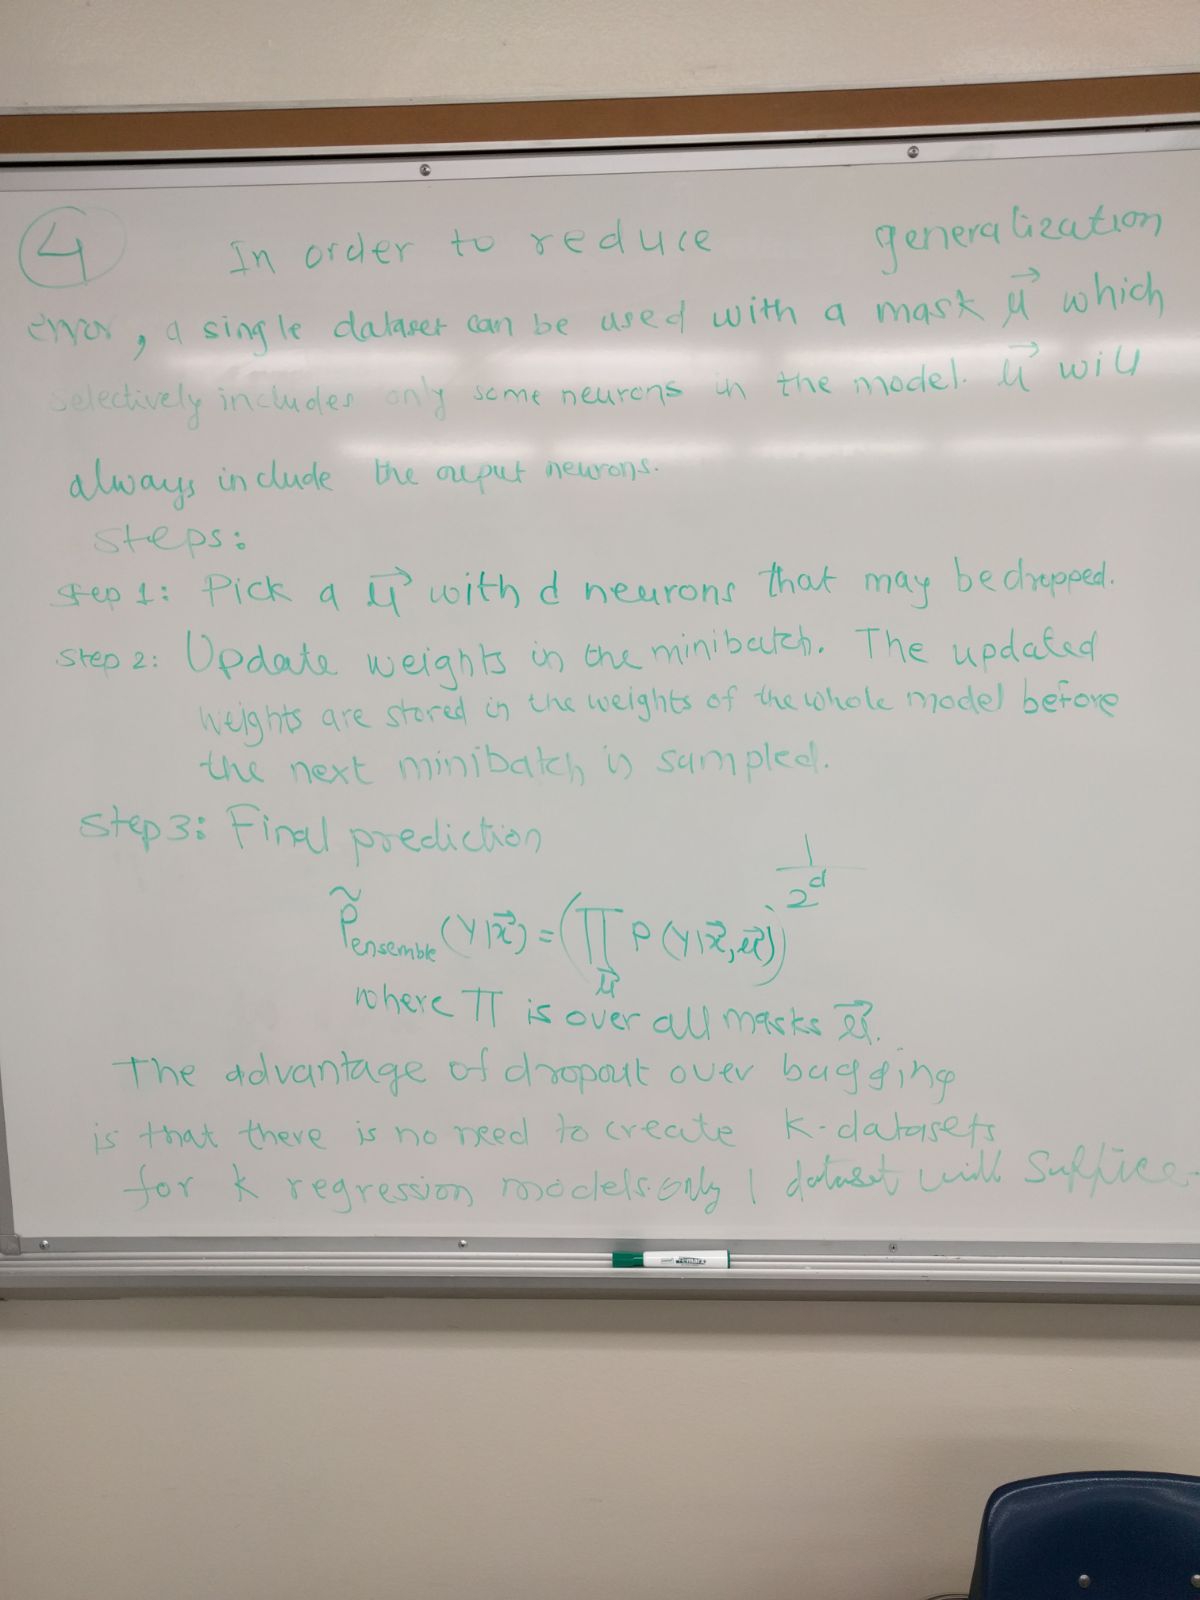 4 In order to reduce generalization
error, a single dataset can be used with a mask μ⃗ which
selectively includes only some neurons in the model. μ⃗ will
always include the ouput neurons.
Steps:
Step 1: Pick a μ⃗ with d neurons that may be dropped.
Step 2: Update weights in the minibatch. The updated
weights are stored in the weights of the whole model before
the next minibatch is sampled.
Step 3: Final prediction
P̃ensemble (y|x⃗) = (∏μ⃗ P(y|x⃗, μ⃗))^(1/2^d)
where ∏ is over all masks μ⃗.
The advantage of dropout over bagging
is that there is no need to create k-datasets
for k regression models. Only 1 dataset will suffice.